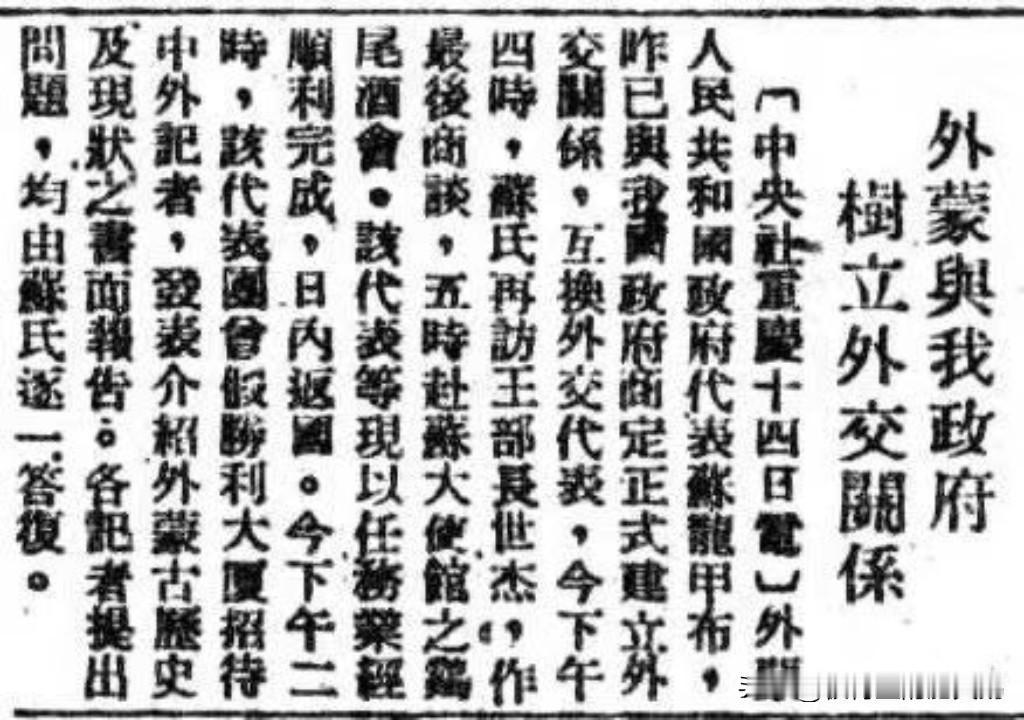 外蒙與我政府
樹立外交關係
〔中央社重慶十四日電〕外
人民共和國政府代表蘇龍甲布，
昨已與我國政府商定正式建立外
交關係，互換外交代表，今下午
四時，蘇氏再訪王部長世杰，作
最後商談，五時赴蘇大使館之鷄
尾酒會。該代表等現以任務業經
順利完成，日內返國。今下午二
時，該代表團曾假勝利大廈招待
中外記者，發表介紹外蒙古歷史
及現狀之書面報告。各記者提出
問題，均由蘇氏逐一答復。